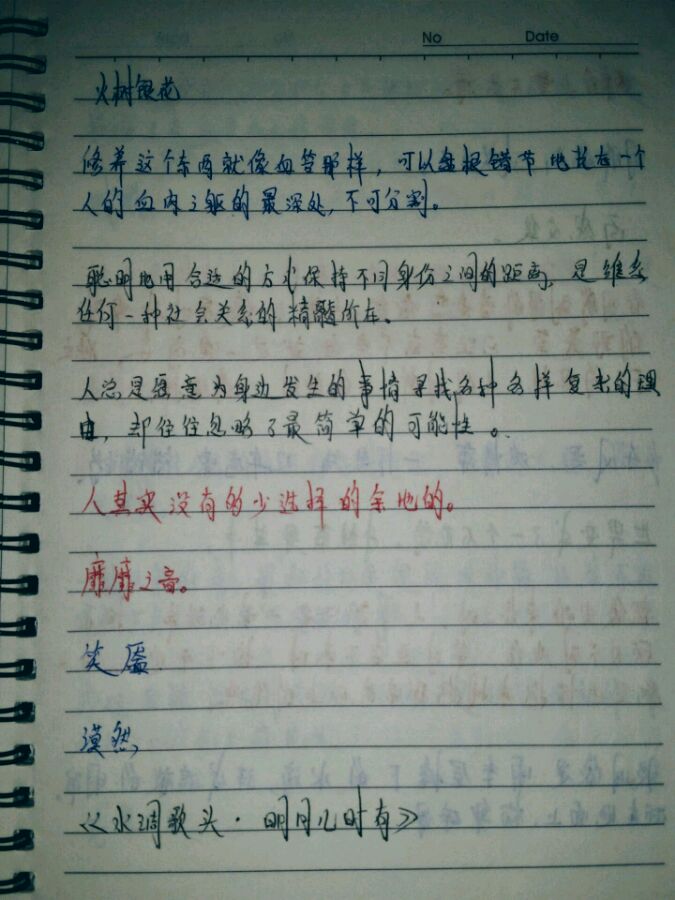 No Date
火树银花
修养这个东西就像血管那样，可以盘根错节地长在一个
人的血肉之躯的最深处，不可分割。
聪明地用合适的方式保持不同身份之间的距离，是维系
任何一种社会关系的精髓所在。
人总是愿意为身边发生的事情寻找各种各样复杂的理
由，却往往忽略了最简单的可能性。
人其实没有多少选择的余地的。
靡靡之音。
笑靥
漠然
《水调歌头·明月几时有》